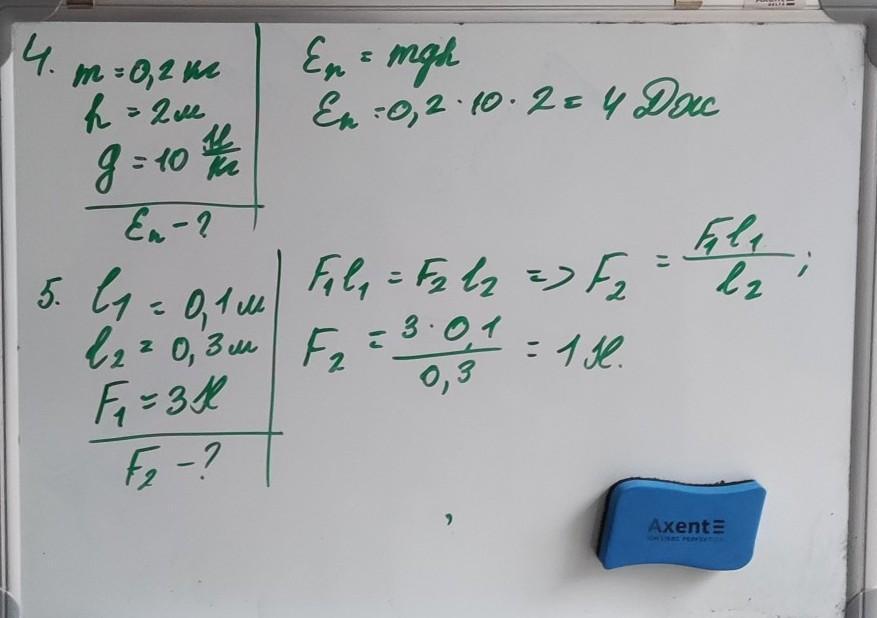 4.
m = 0,2 кг
h = 2 м
g = 10 Н/кг
Eп - ?
Eп = mgh
Eп = 0,2 · 10 · 2 = 4 Дж
5.
l₁ = 0,1 м
l₂ = 0,3 м
F₁ = 3 Н
F₂ - ?
F₁l₁ = F₂l₂ => F₂ = F₁l₁/l₂;
F₂ = 3 · 0,1/0,3 = 1 Н.
Axent